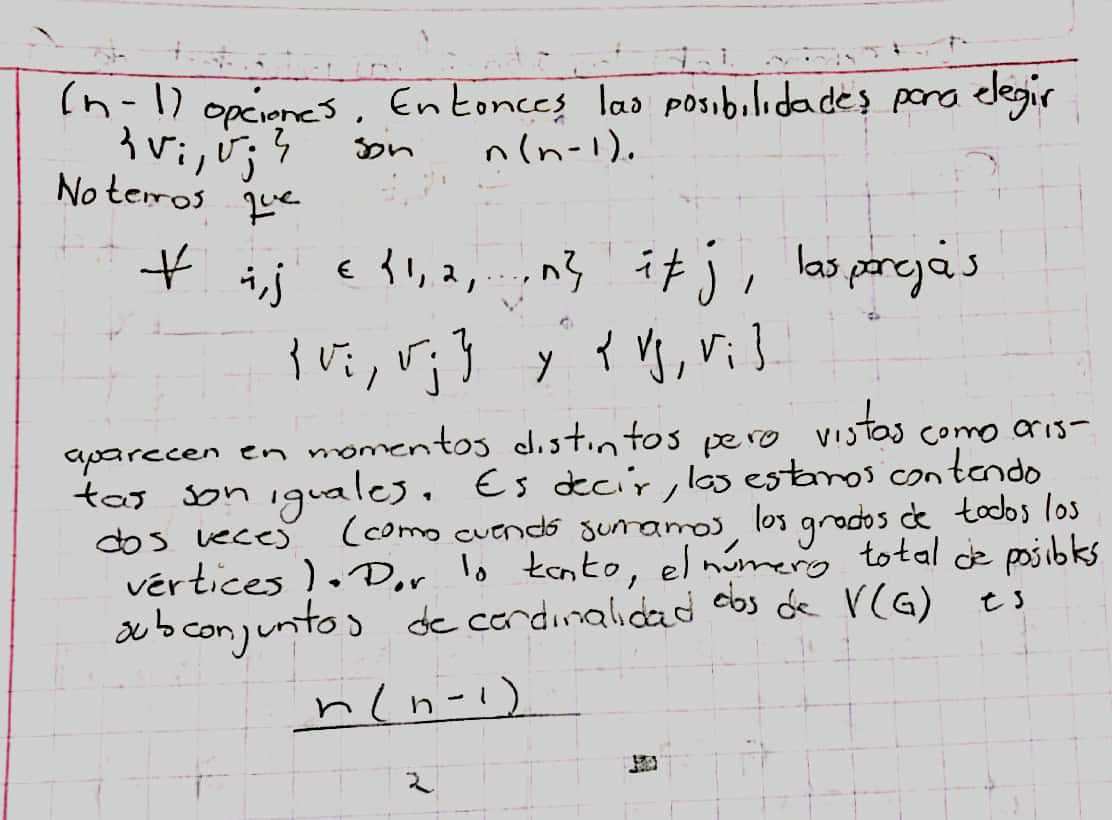 (n-1) opciones. Entonces las posibilidades para elegir
{vi, vj} son n(n-1).
Notemos que
∀ i,j ∈ {1, 2, ..., n} i≠j, las parejas
{vi, vj} y {vj, vi}
aparecen en momentos distintos pero vistas como aris-
tas son iguales. Es decir, las estamos contando
dos veces (como cuando sumamos los grados de todos los
vértices). Por lo tanto, el número total de posibles
subconjuntos de cardinalidad dos de V(G) es
n(n-1)
2